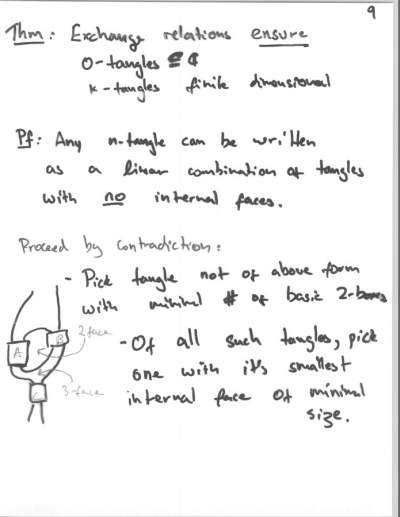 9
Thm: Exchange relations ensure
0-tangles ≅ ℂ
k-tangles finite dimensional
Pf: Any n-tangle can be written
as a linear combination of tangles
with no internal faces.
Proceed by contradiction:
- Pick tangle not of above form
with minimal # of basic 2-boxes
- Of all such tangles, pick
one with it's smallest
internal face of minimal
size.
A
B
C
2 face
3-face